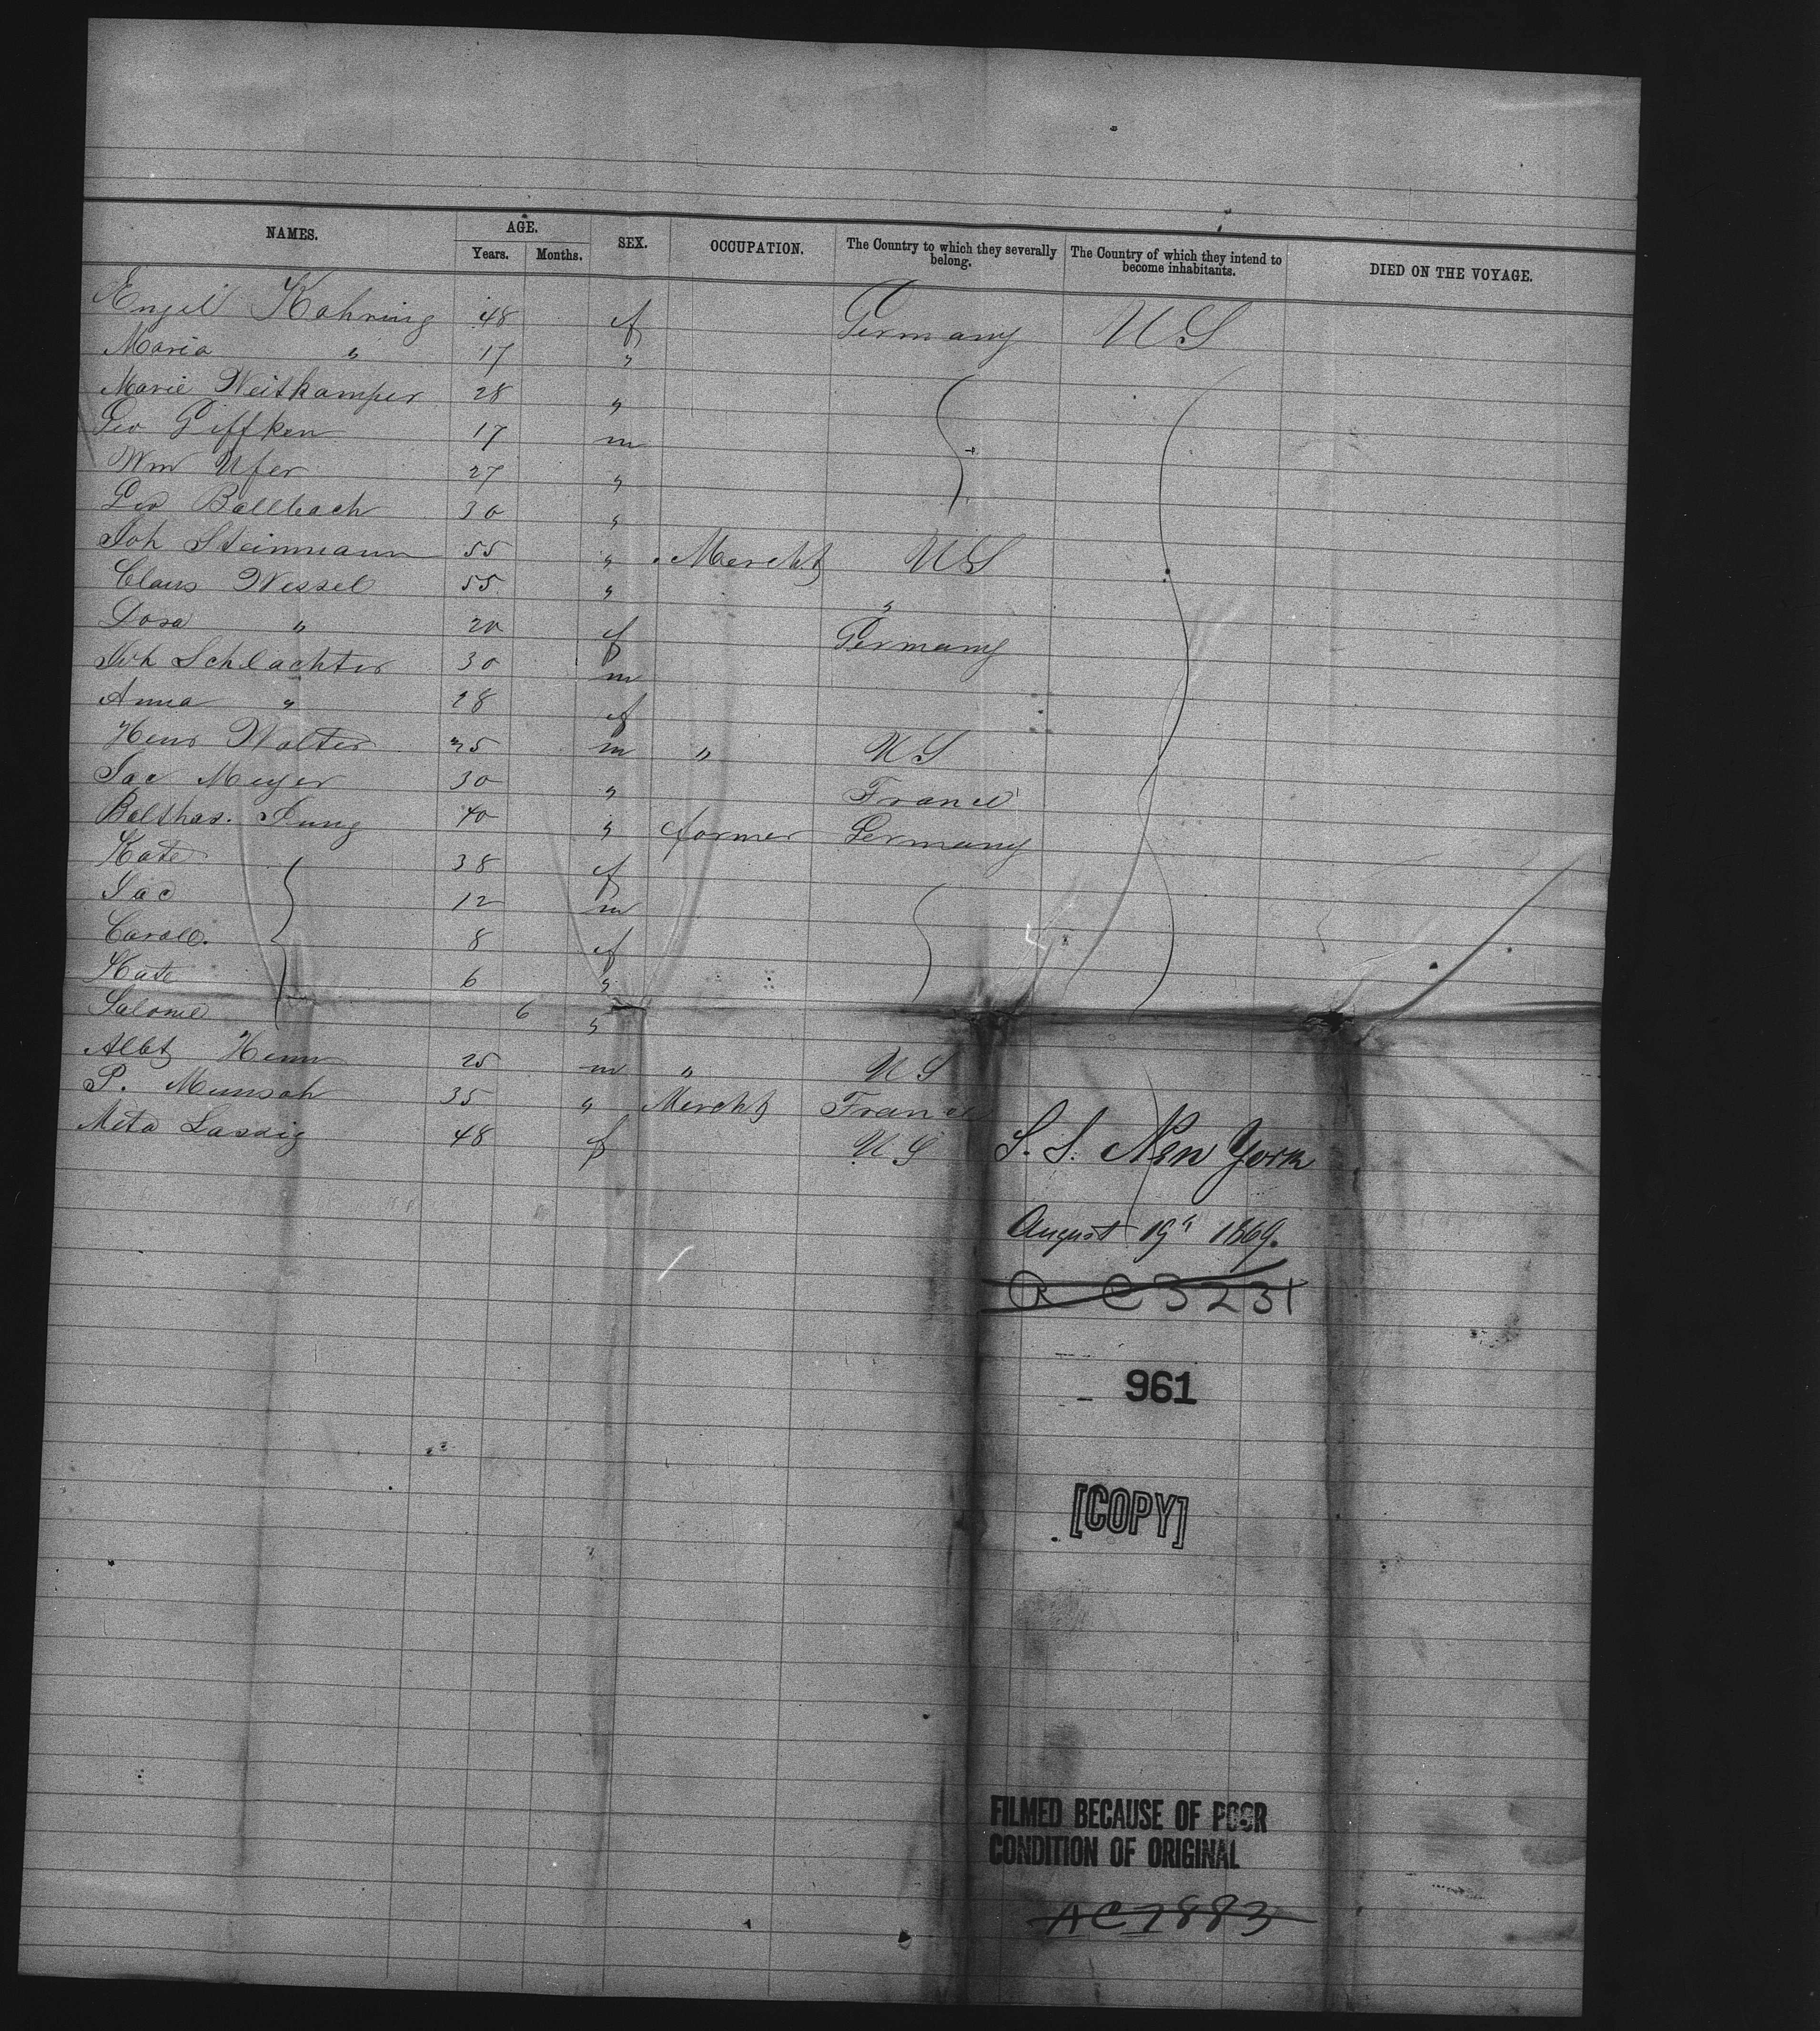 NAMES. AGE. SEX. OCCUPATION. The Country to which they severally belong. The Country of which they intend to become inhabitants. DIED ON THE VOYAGE.
Years. Months.
Engel Kahring 48 f Germany US
Maria " 17 "
Marie Weitkamper 28 "
Geo Giffken 17 m
Wm Ufer 27 "
Geo Ballbach 30 "
Joh Steinmann 55 " Mercht US
Claus Wessel 55 " "
Dora " 20 f Germany
Joh Schlachter 30 m
Anna " 28 f
Henr Walter 25 m " US
Jac Meyer 30 " France
Balthas. Jung 40 " farmer Germany
Kate 38 f
Jac 12 m
Carol. 8 f
Kate 6 "
Salome 6 "
Albt Henn 25 m " US
P. Munsch 35 " Mercht France
Meta Lassig 48 f US
S. S. New York
August 19" 1869.
R C 3231
961
[COPY]
FILMED BECAUSE OF POOR
CONDITION OF ORIGINAL
AC 7883